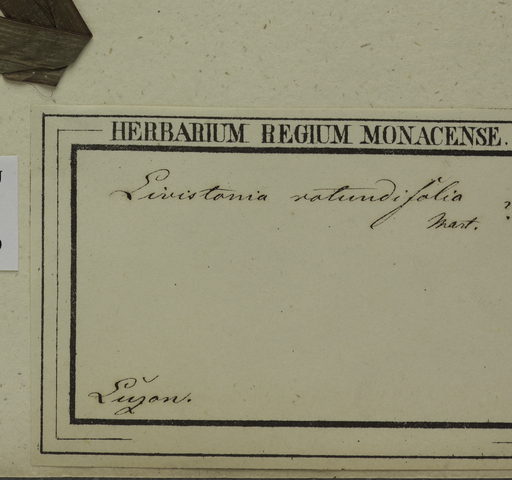 HERBARIUM REGIUM MONACENSE.
Livistonia rotundifolia ?
Mart.
Luzon.